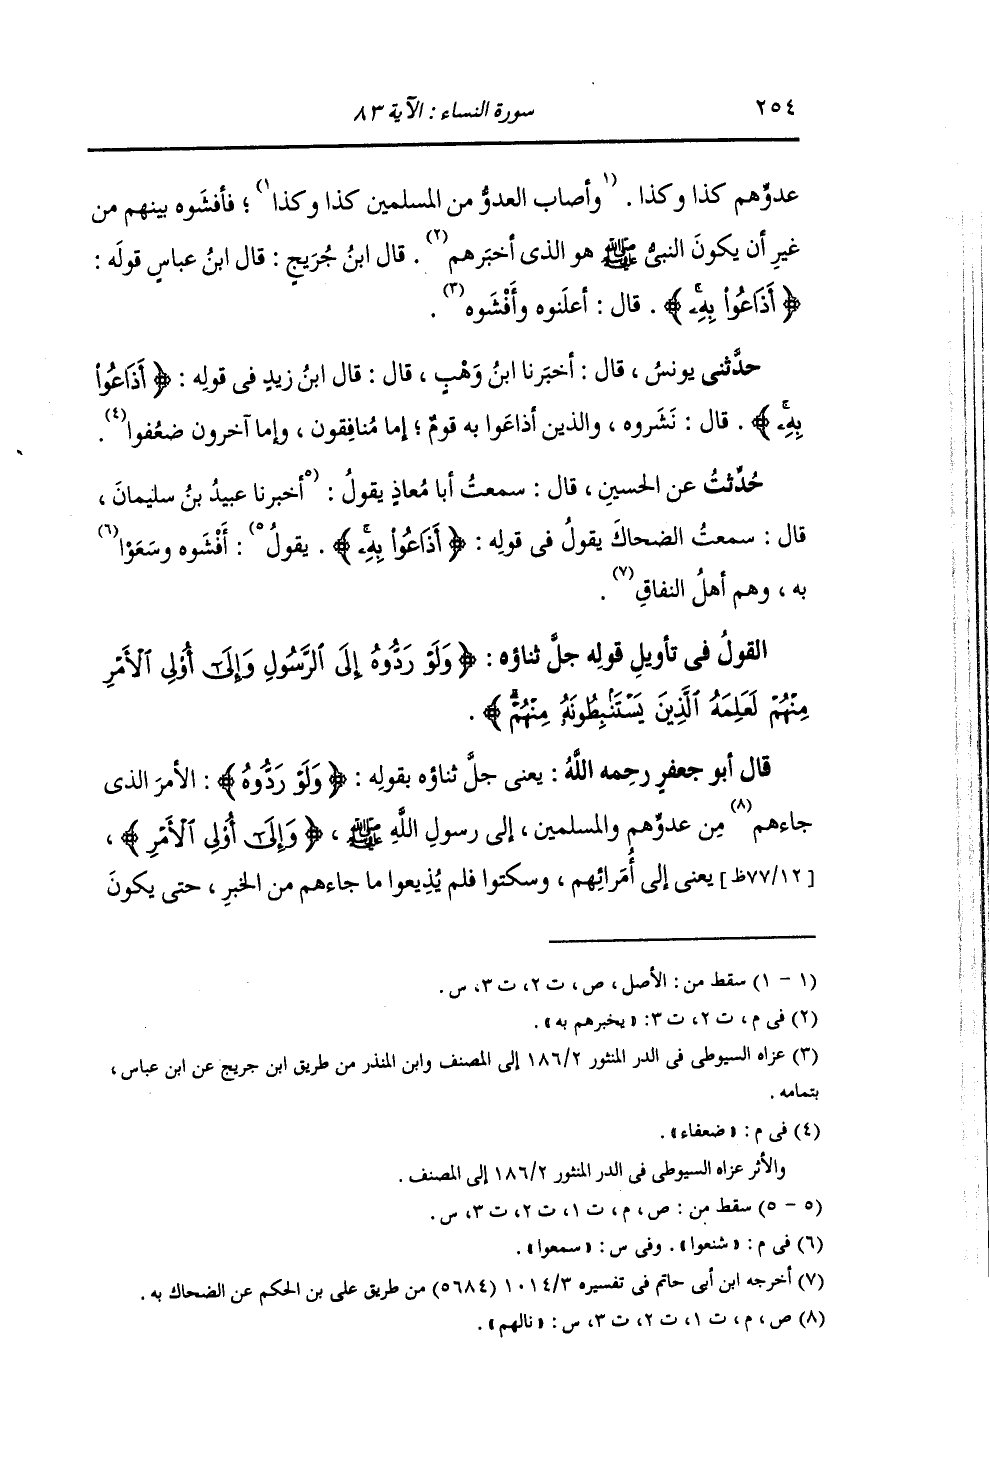 ٢٥٤ سورة النساء : الآية ٨٣
عدوِّهم كذا وكذا . (١وأصاب العدوُّ من المسلمين كذا وكذا١) ؛ فأفشَوه بينهم من
غيرِ أن يكونَ النبىُّ ﷺ هو الذى أخبَرهم(٢) . قال ابنُ جُرَيجٍ : قال ابنُ عباسٍ قولَه :
﴿ أَذَاعُوا۟ بِهِۦۖ ﴾ . قال : أعلَنوه وأَفْشَوه(٣) .
حدَّثنى يونسُ ، قال : أخبَرنا ابنُ وَهْبٍ ، قال : قال ابنُ زيدٍ فى قولِه : ﴿ أَذَاعُوا۟
بِهِۦۖ ﴾ . قال : نَشَروه ، والذين أذاعَوا به قومٌ ؛ إما مُنافِقون ، وإما آخرون ضعُفوا(٤) .
حُدِّثتُ عن الحسينِ ، قال : سمعتُ أبا مُعاذٍ يقولُ : (٥أخبرنا عبيدُ بنُ سليمانَ ،
قال : سمعتُ الضحاكَ يقولُ فى قولِه : ﴿ أَذَاعُوا۟ بِهِۦۖ ﴾ . يقولُ٥) : أَفْشَوه وسَعَوْا(٦)
به ، وهم أهلُ النفاقِ(٧) .
القولُ فى تأويلِ قولِه جلَّ ثناؤه : ﴿ وَلَوْ رَدُّوهُ إِلَى ٱلرَّسُولِ وَإِلَىٰٓ أُو۟لِى ٱلْأَمْرِ
مِنْهُمْ لَعَلِمَهُ ٱلَّذِينَ يَسْتَنۢبِطُونَهُۥ مِنْهُمْۗ ﴾ .
قال أبو جعفرٍ رحِمه اللَّهُ : يعنى جلَّ ثناؤه بقولِه : ﴿ وَلَوْ رَدُّوهُ ﴾ : الأمرَ الذى
جاءهم(٨) مِن عدوِّهم والمسلمين ، إلى رسولِ اللَّهِ ﷺ ، ﴿ وَإِلَىٰٓ أُو۟لِى ٱلْأَمْرِ ﴾ ،
[ ٧٧/١٢ظ ] يعنى إلى أُمَرائِهم ، وسكتوا فلم يُذِيعوا ما جاءهم من الخبرِ ، حتى يكونَ
(١ - ١) سقط من : الأصل ، ص ، ت ٢، ت ٣، س .
(٢) فى م ، ت ٢، ت ٣: « يخبرهم به » .
(٣) عزاه السيوطى فى الدر المنثور ١٨٦/٢ إلى المصنف وابن المنذر من طريق ابن جريج عن ابن عباس ،
بتمامه .
(٤) فى م : « ضعفاء » .
والأثر عزاه السيوطى فى الدر المنثور ١٨٦/٢ إلى المصنف .
(٥ - ٥) سقط من : ص ، م ، ت ١، ت ٢، ت ٣، س .
(٦) فى م : « شنعوا » . وفى س : « سمعوا » .
(٧) أخرجه ابن أبى حاتم فى تفسيره ١٠١٤/٣ (٥٦٨٤) من طريق على بن الحكم عن الضحاك به .
(٨) ص ، م ، ت ١، ت ٢، ت ٣، س : « نالهم » .